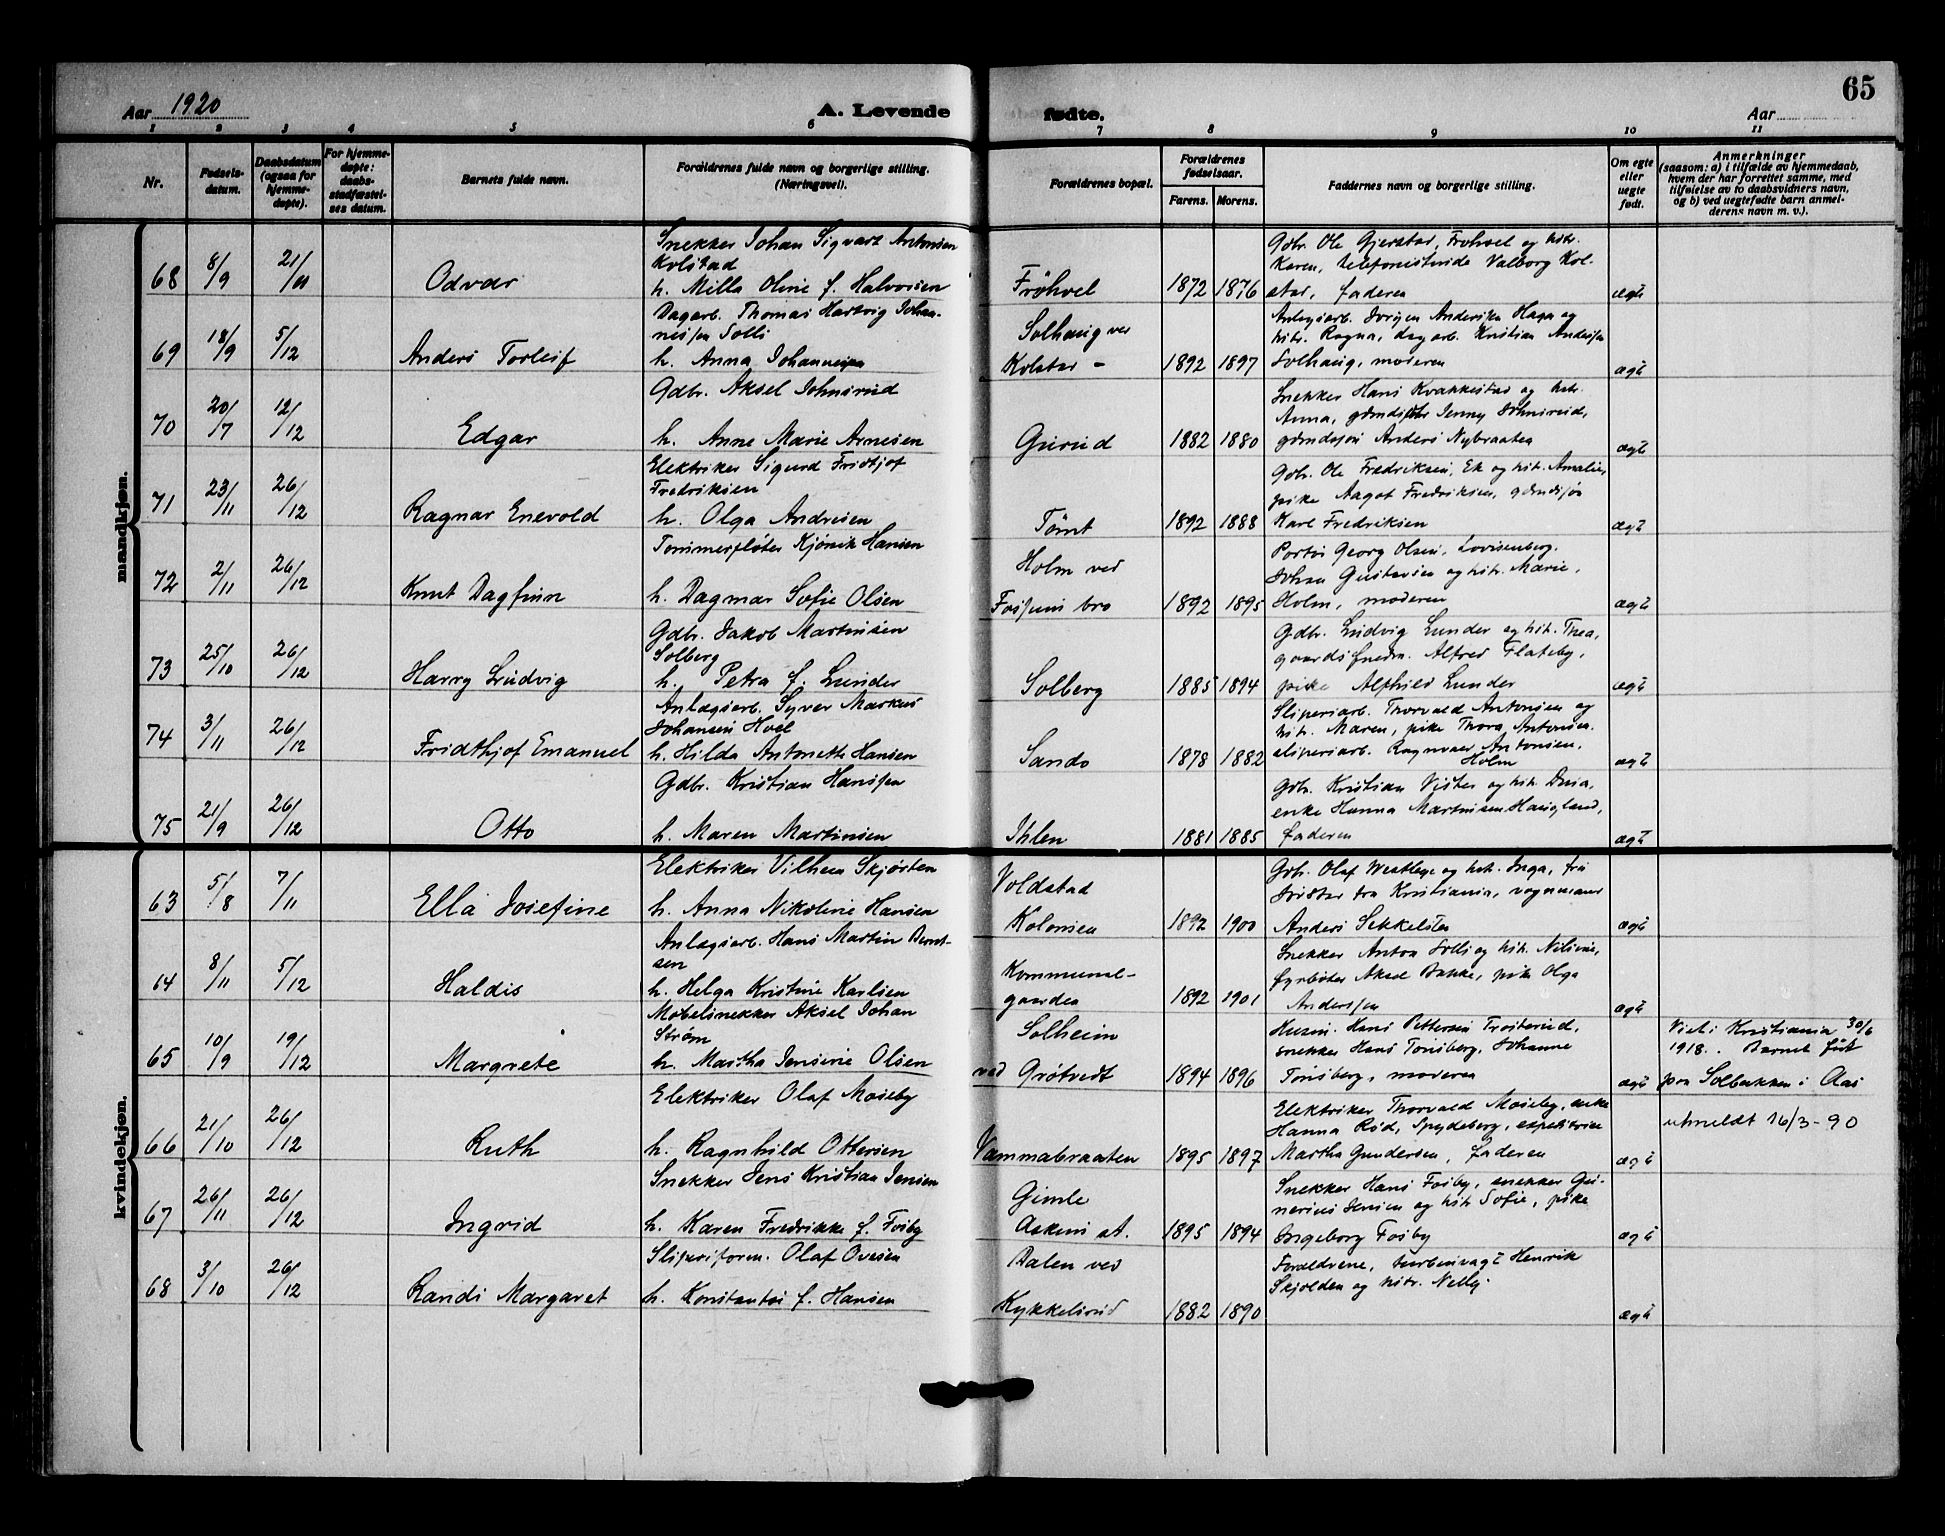 65
Aar 1920
A. Levende fødte.
Aar
1 2 3 4 5 6 7 8 9 10 11
Nr.
Fødsels-
datum.
Daabsdatum
(ogsaa for
hjemme-
døpte).
For hjemme-
døpte:
daabs-
stadfæstel-
ses datum.
Barnets fulde navn.
Forældrenes fulde navn og borgerlige stilling.
(Næringsvei).
Forældrenes bopæl.
Forældrenes
fødselsaar.
Farens. Morens.
Faddernes navn og borgerlige stilling.
Om egte
eller
uegte
født.
Anmerkninger
(saasom: a) i tilfælde av hjemmedaab,
hvem der har forrettet samme, med
tilføielse av to daabsvidners navn,
og b) ved uegtefødte barn anmel-
derens navn m. v.).
mandkjøn.
68 8/9 21/11 Odvar
Snekker Johan Sigvart Antonsen
Kolstad
h. Milla Oline f. Halvorsen
Frøhvel 1872 1876
Gdbr. Ole Gjerstad, Frøhvel og hstr.
Karen, telefonistinde Valborg Kol-
stad, faderen
ægte
69 18/9 5/12 Anders Torleif
Dagarb. Thomas Hartvig Johan-
nessen Solli
h. Anna Johannessen
Solhaug ved
Kolstad - 1892 1897
Anlegsarb. Jørgen Andersen Haga og
hstr. Ragna, dagarb. Kristian Andersen
Solhaug, moderen
ægte
70 20/7 12/12 Edgar
Gdbr. Aksel Johnsrud
h. Anne Marie Arnesen
Gurud 1882 1880
Snekker Hans Kvakkestad og hstr.
Anna, gdmdsdtr Jenny Johnsrud,
gdmdssøn Anders Nybraaten
ægte
71 23/11 26/12 Ragnar Enevold
Elektriker Sigurd Fridtjof
Fredriksen
h. Olga Andresen
Tømt 1892 1888
Gdbr. Ole Fredriksen, Ek og hstr. Amalie,
pike Aagot Fredriksen, gdmdssøn
Karl Fredriksen
ægte
72 2/11 26/12 Knut Dagfinn
Tømmerfløter Kjønik Hansen
h. Dagmar Sofie Olsen
Holm ved
Fossum bro 1892 1895
Portør Georg Olsen, Lovisenberg.
Johan Gustavsen og hstr. Marie,
Holm, moderen
ægte
73 25/10 26/12 Harry Ludvig
Gdbr. Jakob Martinsen
Solberg
h. Petra f. Lunder
Solberg 1885 1894
Gdbr. Ludvig Lunder og hstr. Thea,
gaardsfuldm. Alfred Flateby,
pike Alfhild Lunder
ægte
74 3/11 26/12 Fridthjof Emanuel
Anlægsarb. Syver Markus
Johansen Hoel
h. Hilda Antonette Hansen
Sando 1878 1882
Sliperiarb. Thorvald Antonsen og
hstr. Maren, pike Thora Antonsen.
sliperiarb. Ragnvald Antonsen,
Holm
ægte
75 21/9 26/12 Otto
Gdbr. Kristian Hanssen
h. Maren Martinsen
Ihlen 1881 1885
Gdbr. Kristian Vister og hstr. Dina,
enke Hanna Martinsen Haugland,
faderen
ægte
kvindekjøn.
63 5/8 7/11 Ella Josefine
Elektriker Vilhem Skjørten
h. Anna Nikoline Hansen
Voldstad
Kolonien 1892 1900
Gdbr. Olaf Westbye og hstr. Inga, fru
fra Kristiania, vognmand
Anders Sekkelsten
ægte
64 8/11 5/12 Haldis
Anlægsarb. Hans Martin Bernt-
sen
h. Helga Kristine Karlsen
Kommunal-
gaarden 1892 1901
Snekker Anton Solli og hstr. Nilsine,
fyrbøter Aksel Bakke, pike Olga
Anderssen
ægte
65 10/9 19/12 Margrete
Møbelsnekker Aksel Johan
Strøm
h. Martha Jensine Olsen
Solheim
ved Grøtvedt 1894 1896
Husm. Hans Pettersen Trosterud,
snekker Hans Tønsberg, Johanne
Tønsberg, moderen
ægte
Viet i Kristiania 30/6
1918. Barnet født
paa Solbakken i Aas
66 21/10 26/12 Ruth
Elektriker Olaf Moseby
h. Ragnhild Ottersen
Vammabraaten 1895 1897
Elektriker Thorvald Moseby, enke
Hanna Rød, Spydeberg, expeditrice
Martha Gundersen, faderen
ægte
utmeldt 16/3-90
67 26/11 26/12 Ingrid
Snekker Jens Kristian Jensen
h. Karen Fredrikke f. Fosby
Gimle
Askim st. 1895 1894
Snekker Hans Fosby, snekker Gu-
nerius Jensen og hstr. Sofie, pike
Ingeborg Fosby
ægte
68 3/10 26/12 Randi Margaret
Sliperiform. Olaf Ovesen
h. Konstantse f. Hansen
Dalen ved
Kykkelsrud 1882 1890
Forældrene, turbinvagt Henrik
Skjolden og hstr. Nelly.
ægte